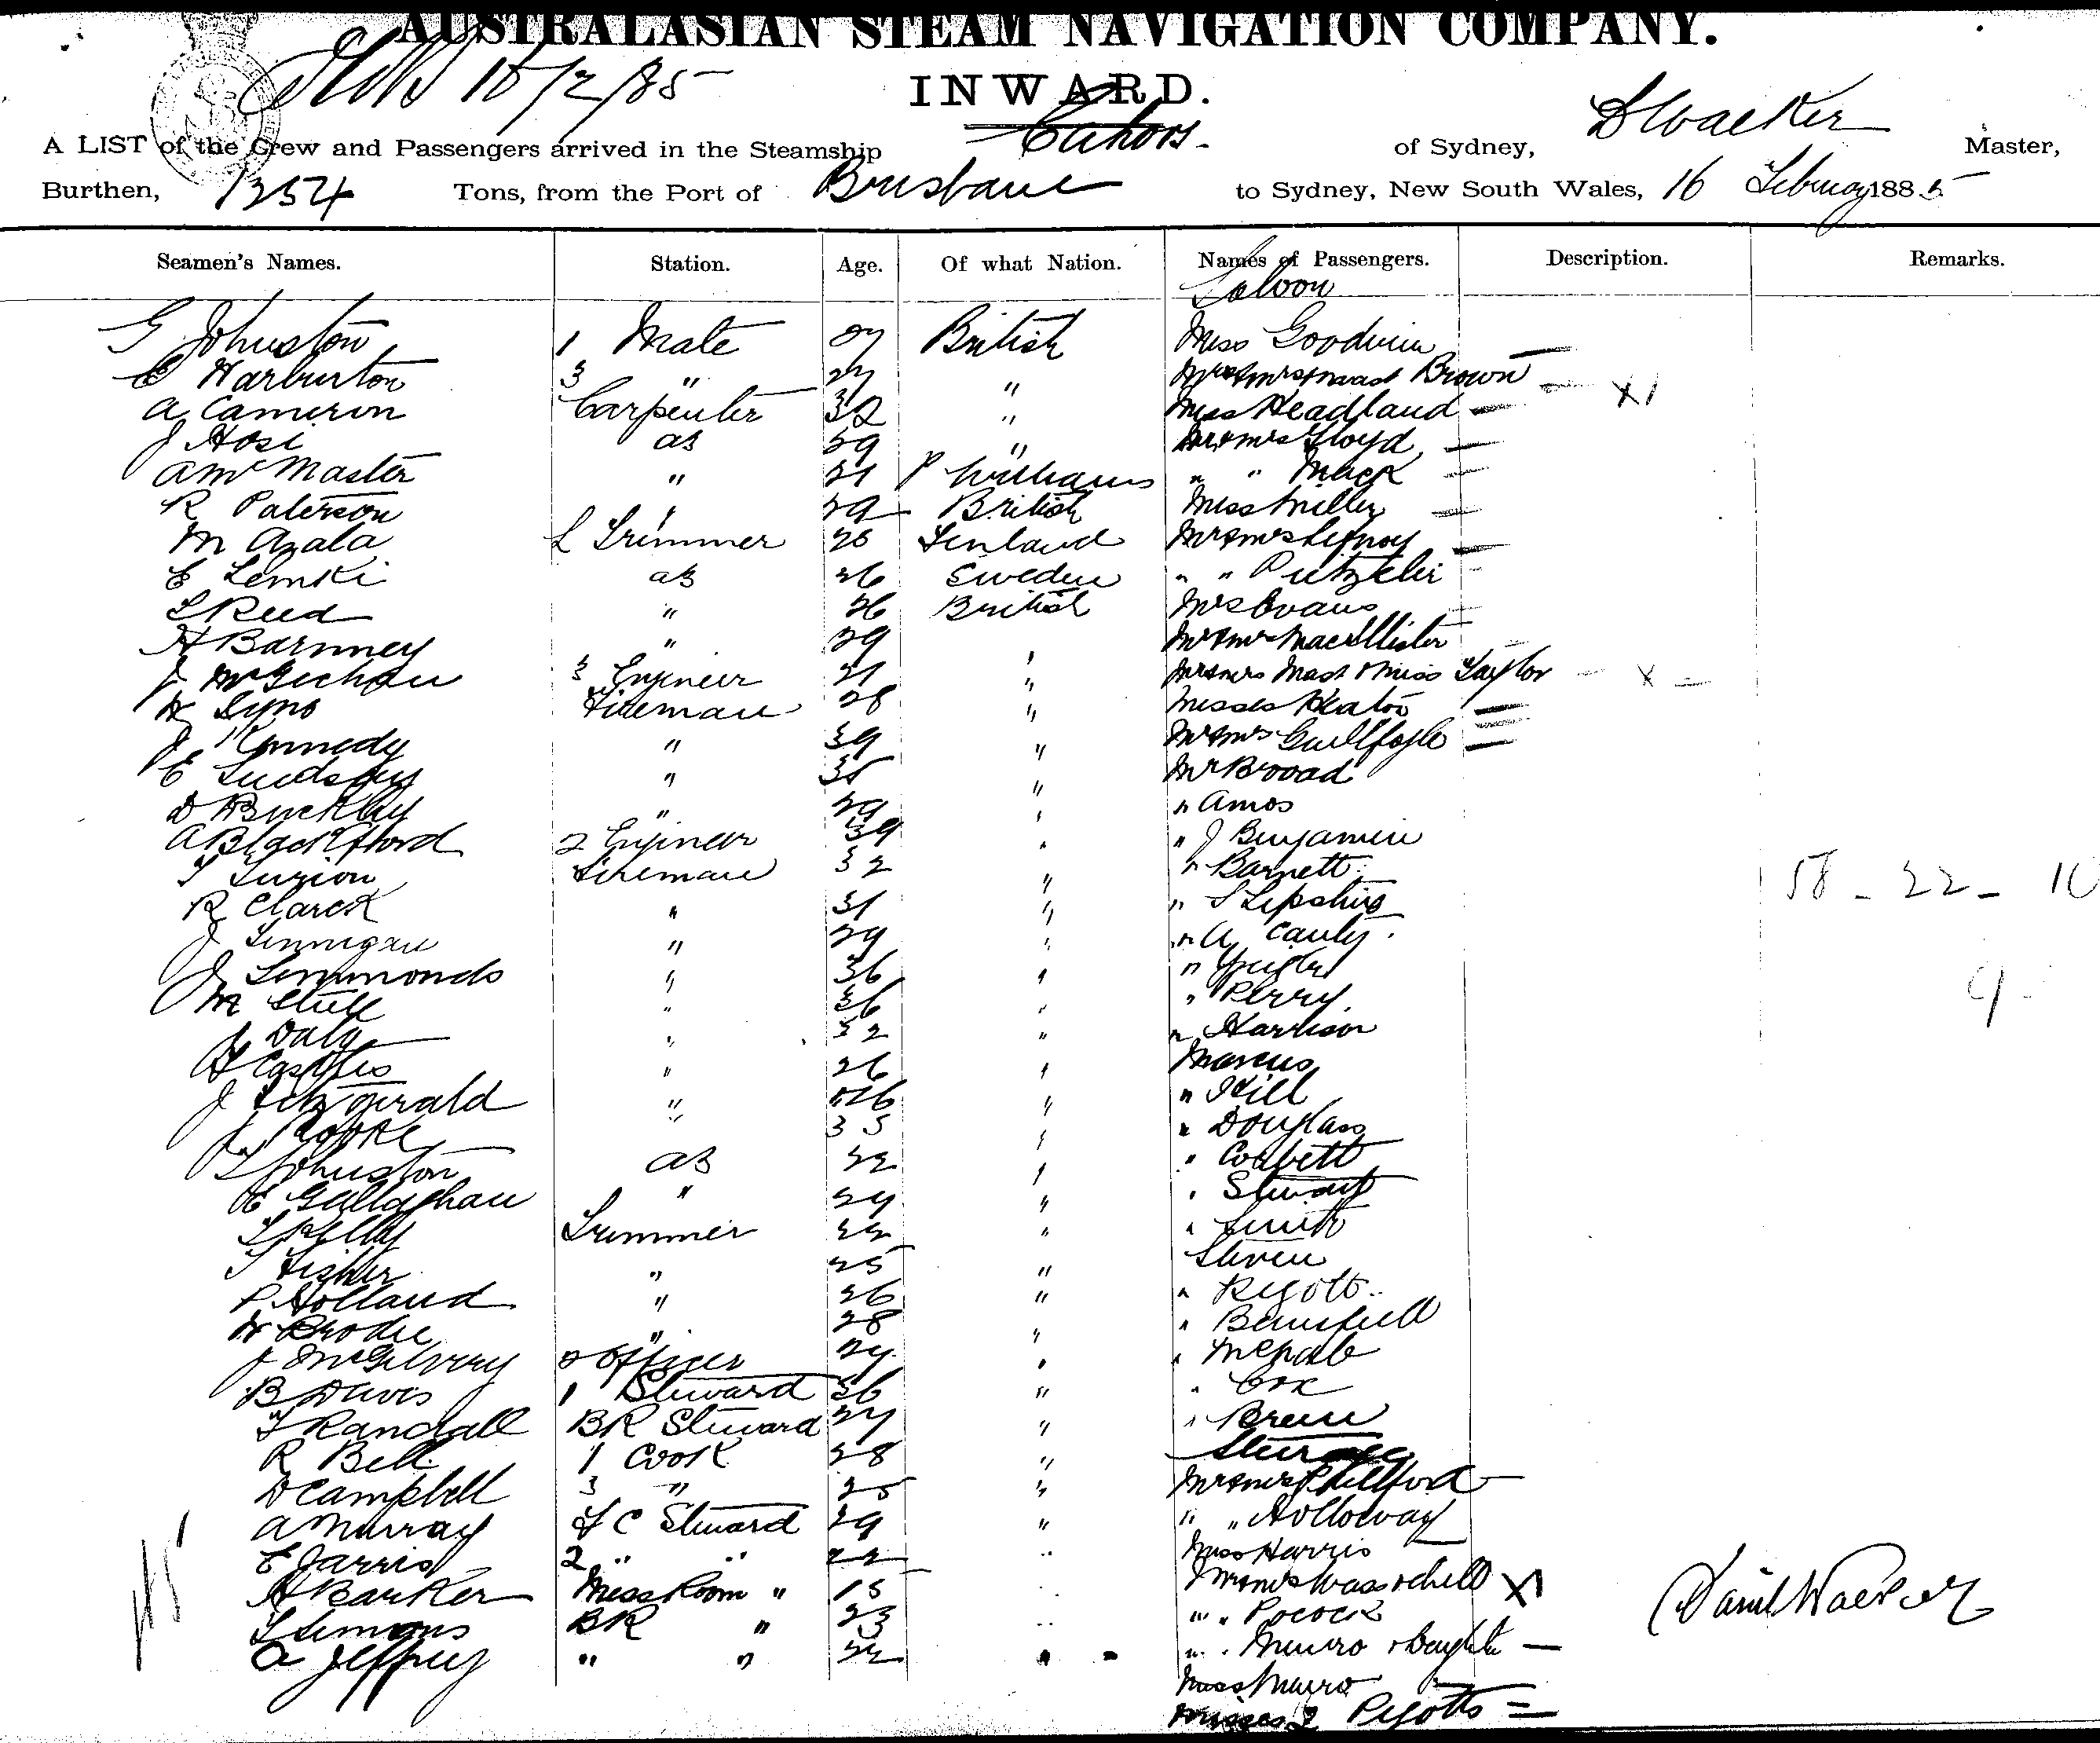 AUSTRALASIAN STEAM NAVIGATION COMPANY.
16/2/85
INWARD.
A LIST of the Crew and Passengers arrived in the Steamship Cahors. of Sydney, D Walker Master,
Burthen, 1254 Tons, from the Port of Brisbane to Sydney, New South Wales, 16 February 1885
Seamen's Names. Station. Age. Of what Nation. Names of Passengers. Description. Remarks.
Saloon
G Johnston 1 Mate British Miss Goodwin
Warburton 3 " " Brown
A Cameron Carpenter 32 " Miss Headland
J Hosi AB 29 " Mr & Mrs Lloyd
A McMaster " 21 P Williams " " Mack
R Paterson " 29 British Miss Miller
M Azala L Trimmer 28 Finland Mr & Mrs
E Lemki AB 26 Sweden " "
Reed " 26 British Mrs Evans
H Barnney " 29 " Mr & Mrs MacAllister
J McGechan 3 Engineer 21 " Mr & Mrs Mast & Miss Taylor
Fireman 28 " Misses Heaton
J Kennedy " 39 " Mr & Mrs Guilfoyle
E Lindsay " 35 " Mr Broad
D Buckley " 29 " " Amos
A Blackford 2 Engineer 39 " " J Benjamin
Fireman 32 " " Barnett
R Clarck " 31 " " S Lipshing
J Finnigan " 29 " " A Cauty
58 - 22 - 10
J Simmonds " 36 " "
M " 36 " " Perry
9
J Daly " 32 " " Harrison
" 26 " Marcus
J Fitzgerald " " " Hill
J Cooke " 35 " " Douglass
Johnston AB 22 " " Corbett
E Gallaghan " 24 " " Stewart
Kelly Trimmer 22 " " Smith
Fisher " 25 " Steven
P Holland " 26 " " Pigott
W Brodie " 28 "
J McGilvery 2 Officer 24 " " McNab
B Davis 1 Steward 36 " " Cox
Randall BR Steward 24 "
R Bell 1 Cook 28 "
D Campbell 3 " 25 " Mr & Mrs
A Murray F C Steward 29 " " " Holloway
E Jarris 2 " " 22 " Miss Harris
H Barker Mess Room " 15
BR " 23 " " Pocock
A Jeffrey " " 22 " " " Munro & Daughter
Miss Munro
Misses 2 Pigotts
45
Daniel Walker